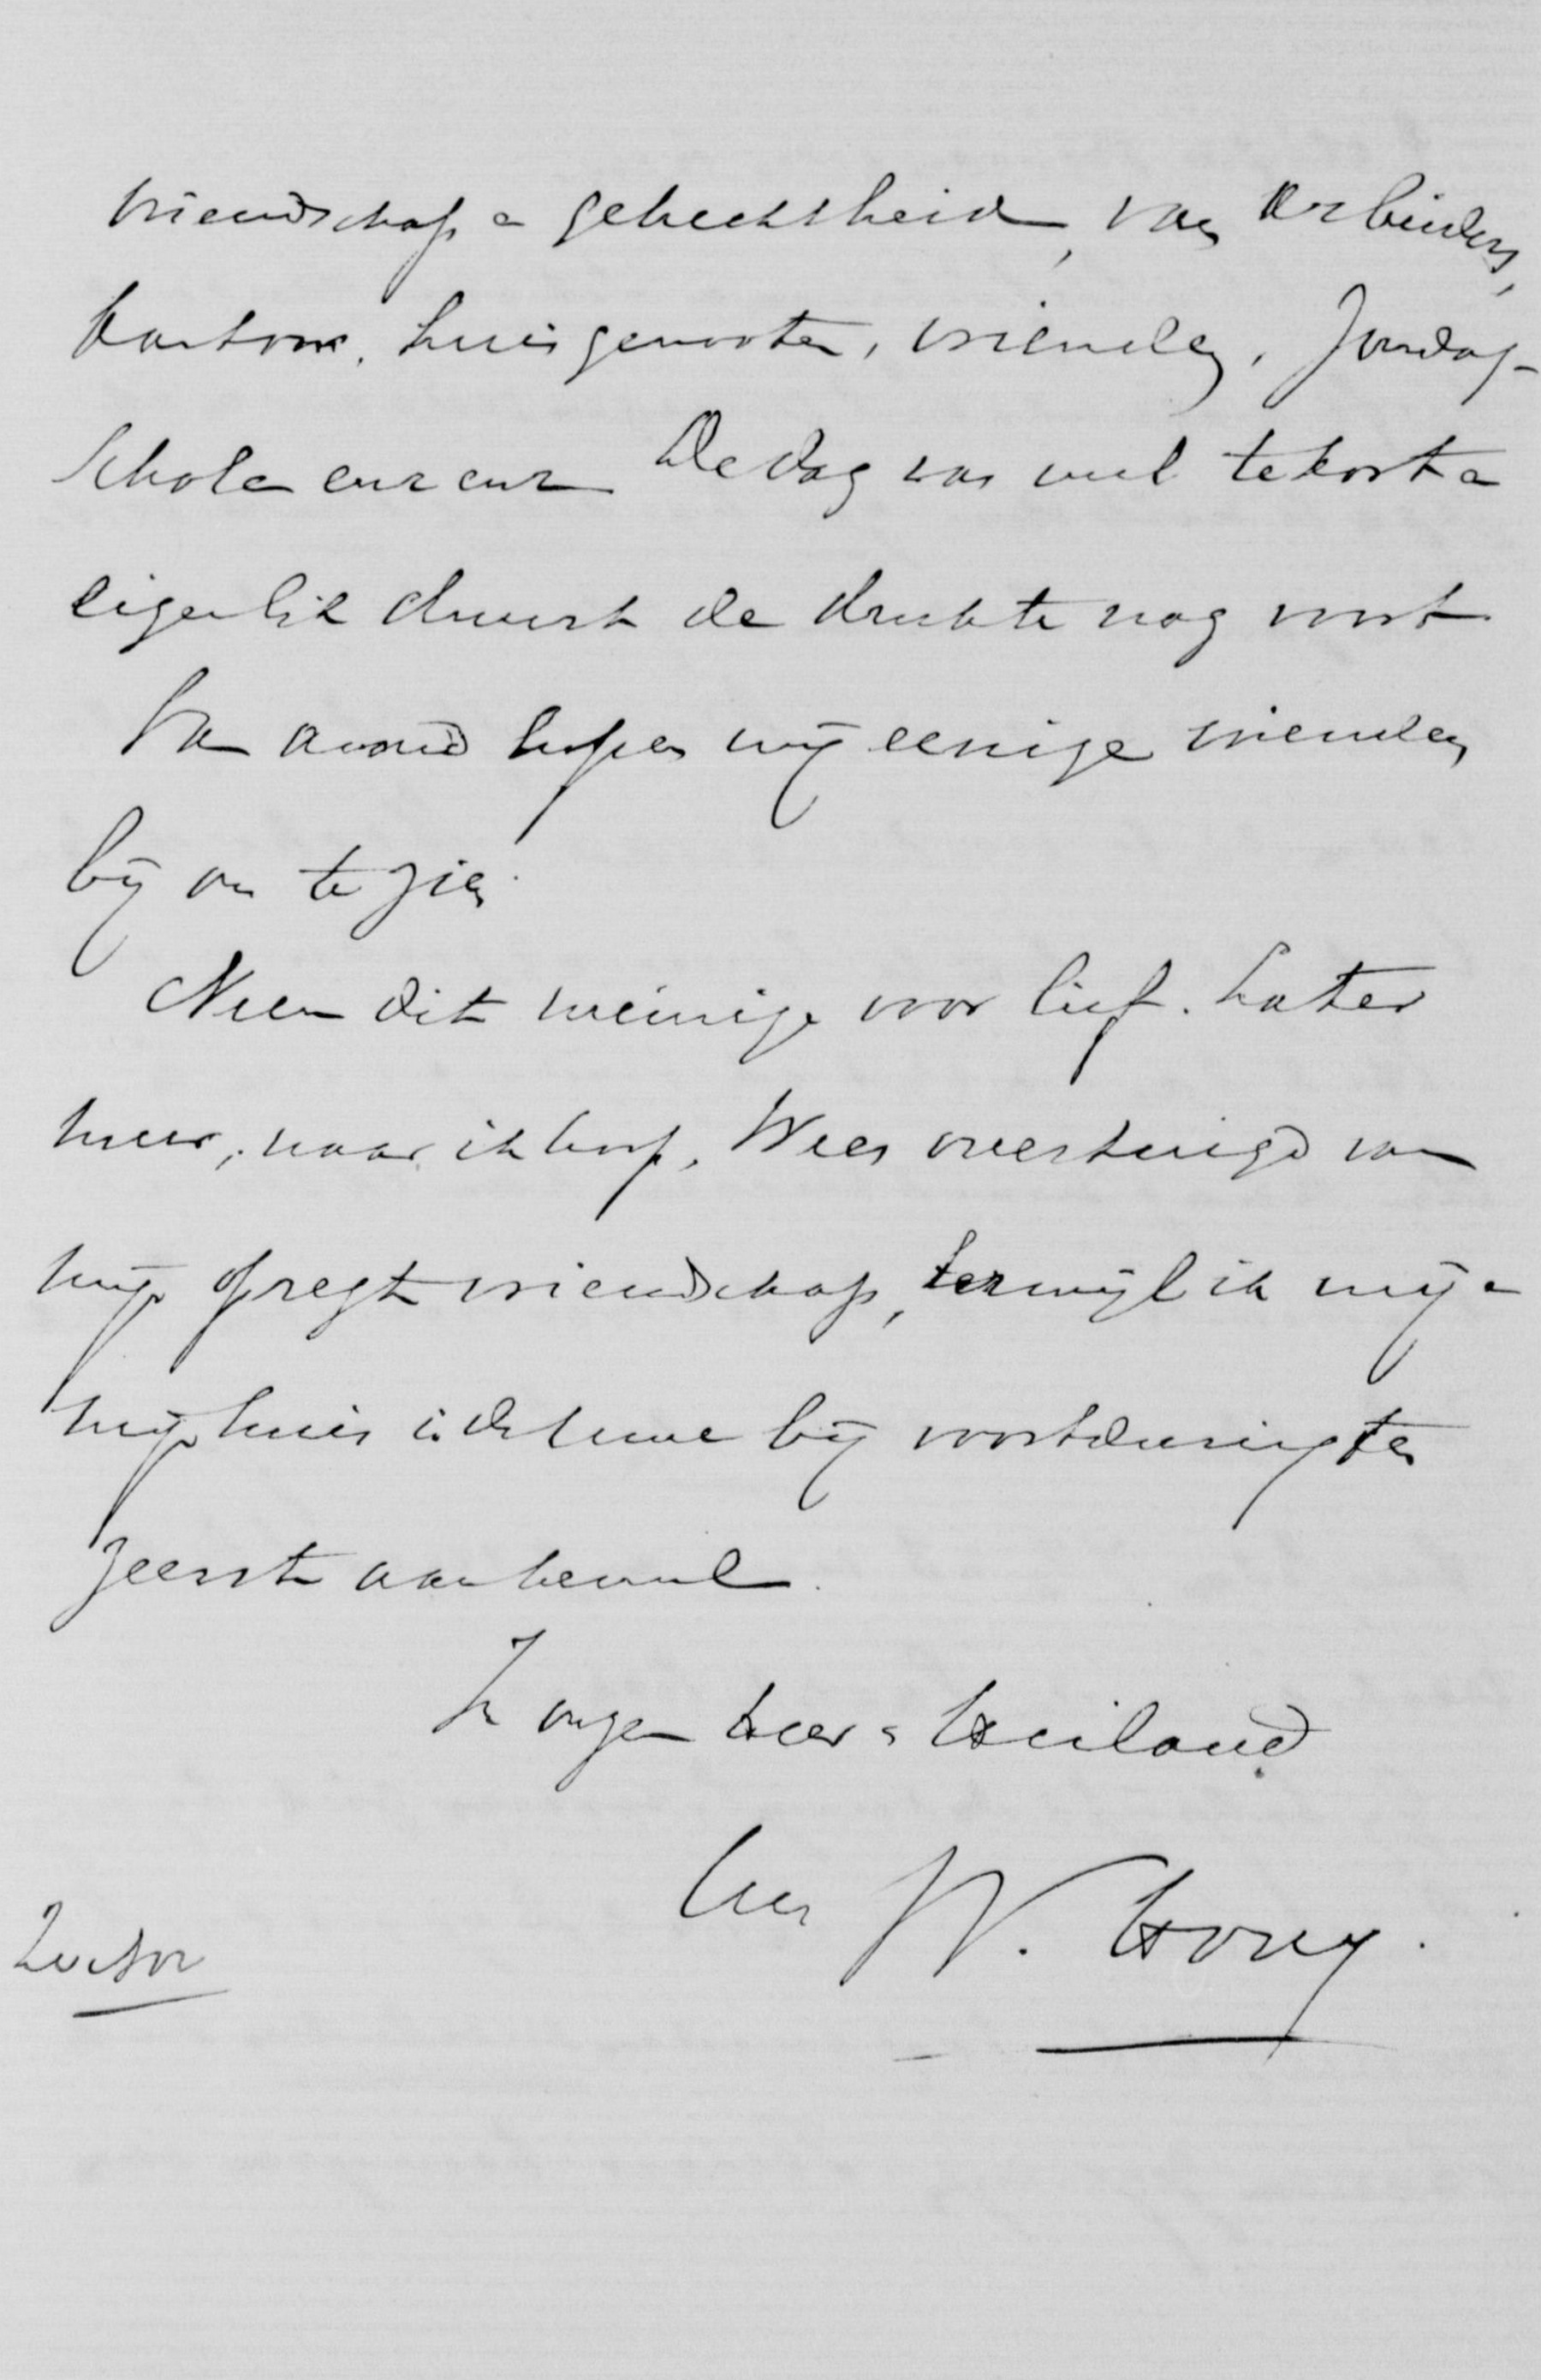 vriendschap en gehechtheid, van Arbeiders,
kantoor, huisgenooten, vrienden, Zondag-
Schole enz enz De dag was veel te kort en
eigenlijk duurt de drukte nog voort
Van avond hopen wij eenige vrienden
bij ons te zien.
Neem dit weinige voor lief. Later
meer, naar ik hoop. Wees overtuigd van
mijn opregte vriendschap, terwijl ik mij en
mijn huis in de Uwe bij voortduring ten
zeerste aanbeveel.
In onzen Heer en Heiland
Uw W. Hovy.